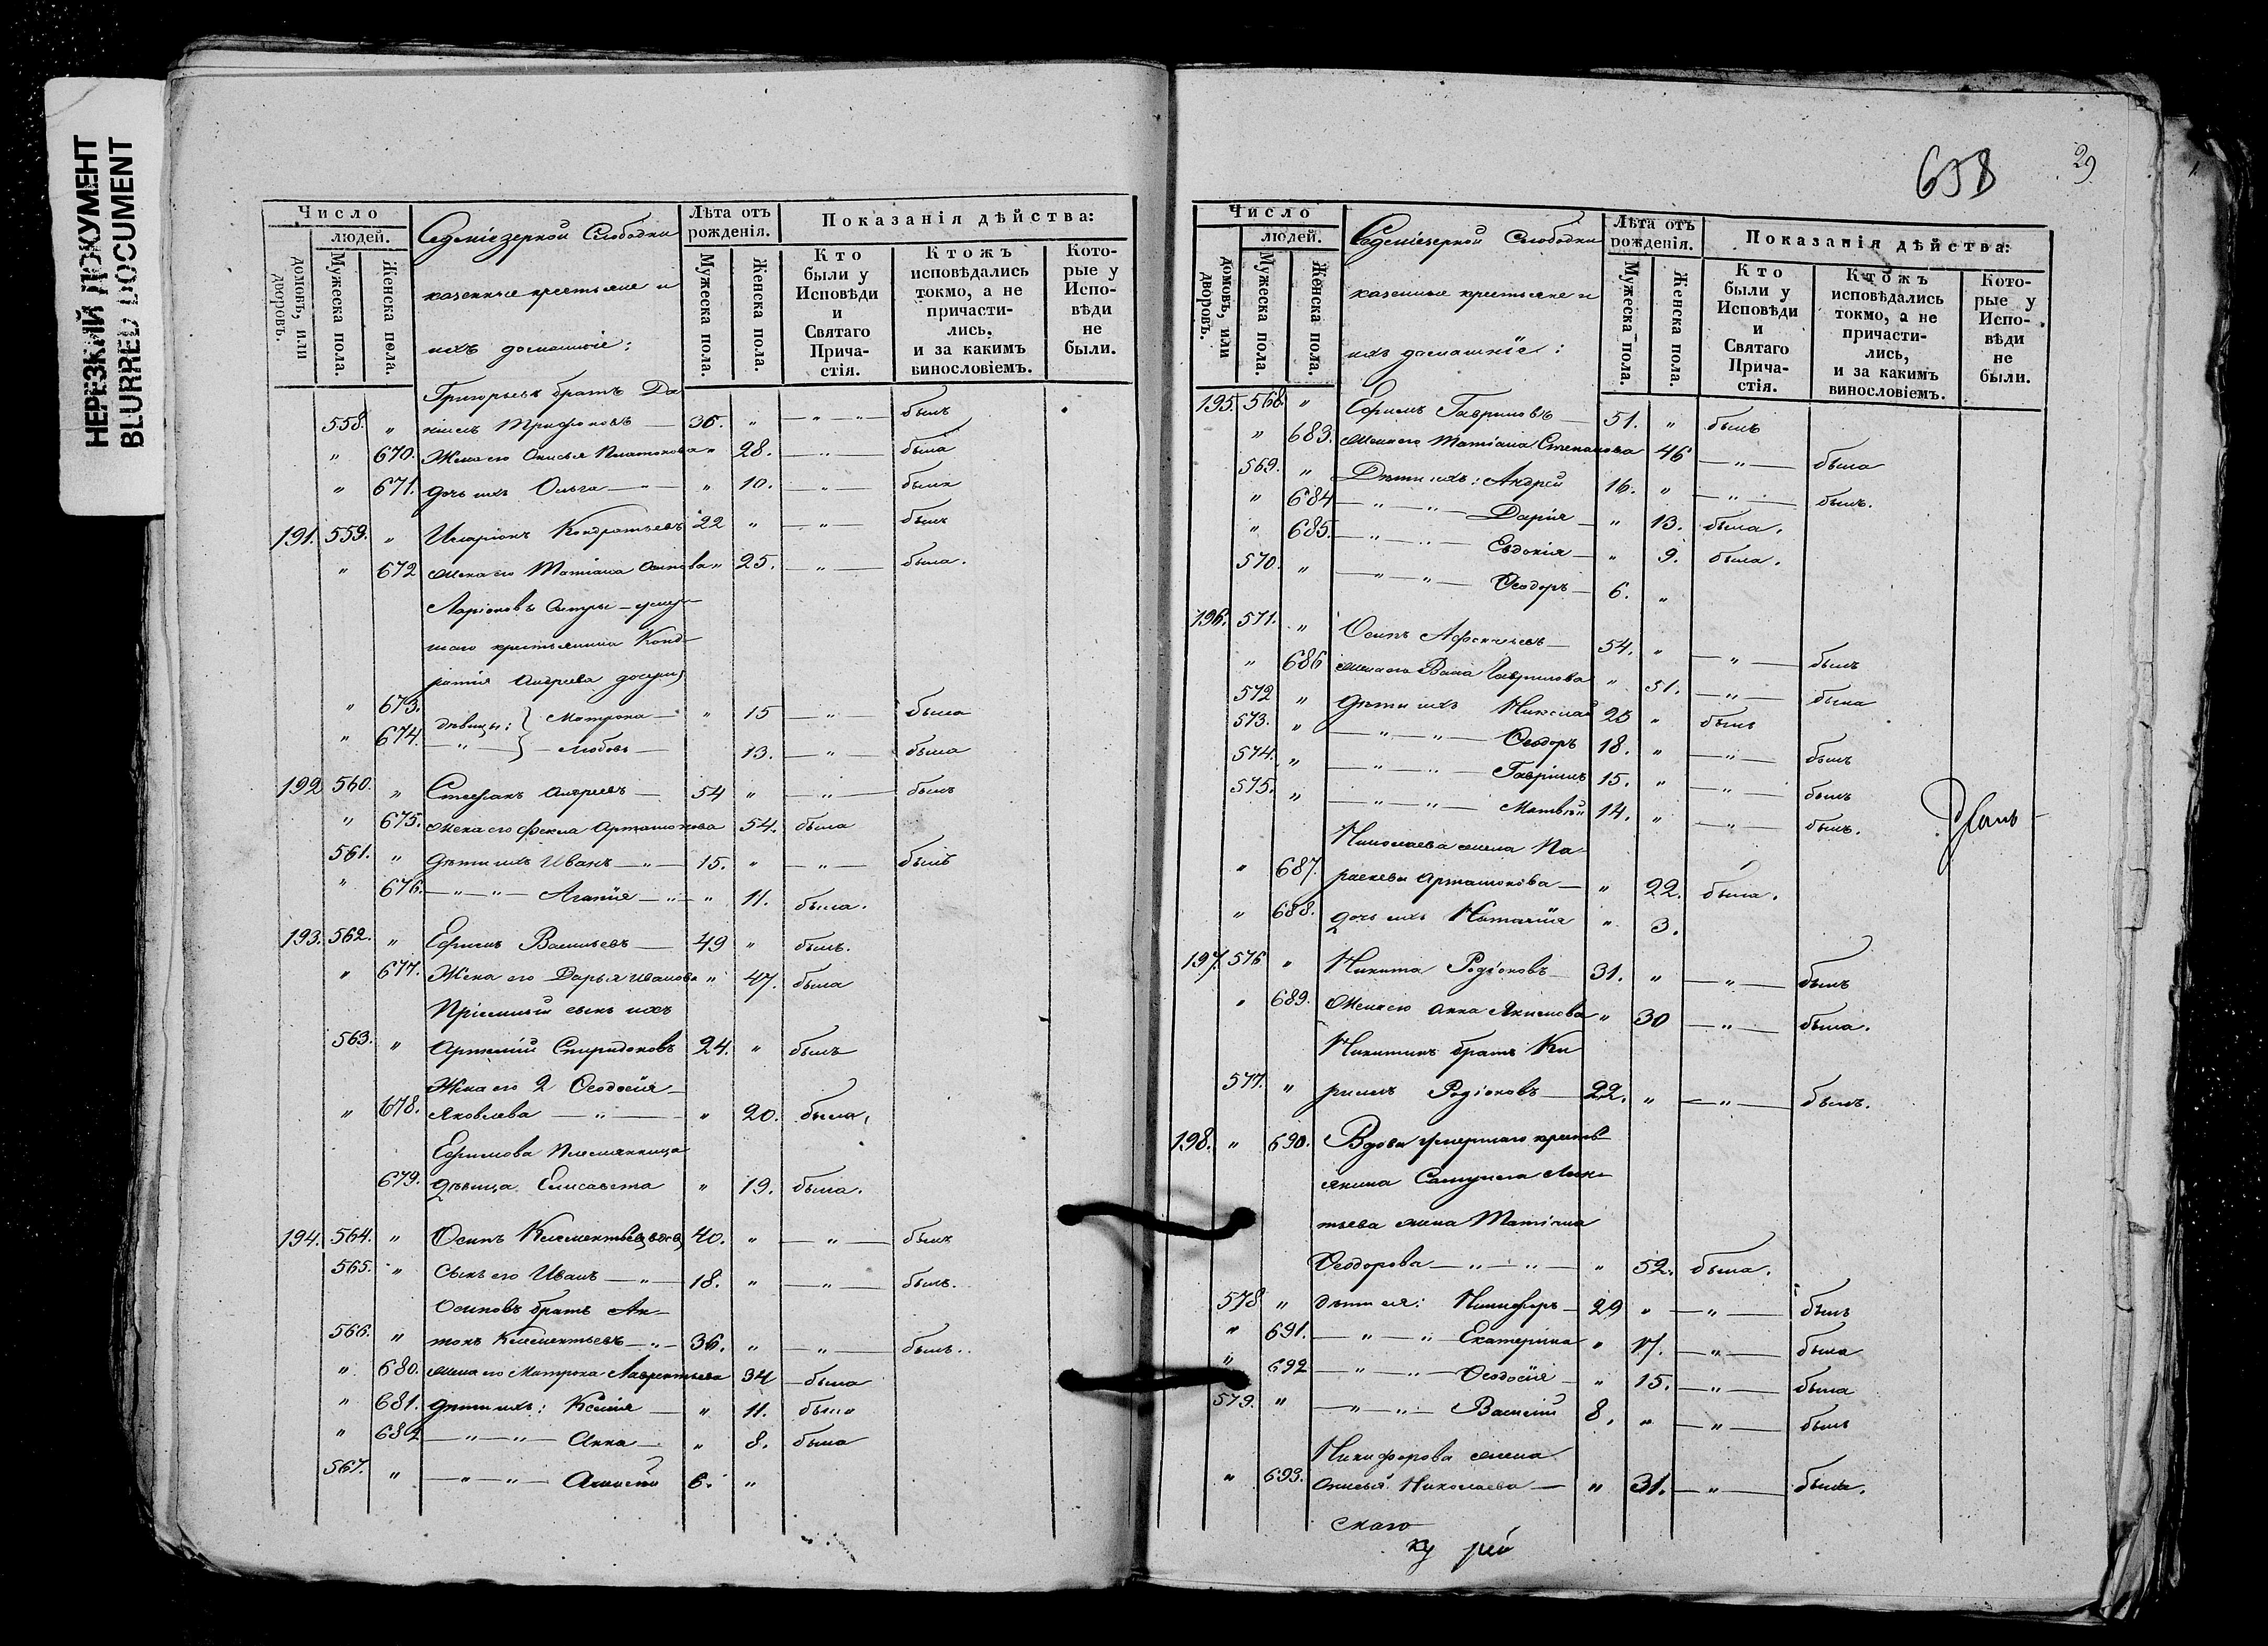 НЕРЕЗКИЙ ДОКУМЕНТ
BLURRED DOCUMENT
Число
людей.
домовъ, или дворовъ.
Мужеска пола.
Женска пола.
Седміезерной Слободки
казенные крестьяне и
ихъ домашніе:
Лѣта отъ рожденія.
Мужеска пола.
Женска пола.
Показанія дѣйства:
Кто были у Исповѣди и Святаго Прича-стія.
Ктожъ исповѣдались токмо, а не причасти-лись, и за какимъ винословіемъ.
Кото-рые у Испо-вѣди не были.
Григорьевъ братъ Да
558. " ниилъ Трифоновъ — 36. " — " — былъ
" 670. Жена его Анисья Платонова " 28. — " — была
" 671. дочь ихъ Ольга — " — " 10. — " — была
191. 559. " Иларіонъ Кондратьевъ 22 " — " — былъ
" 672 жена его Татіана Осипова " 25. — " — была.
Ларіоновы сестры — умер-
шаго крестьянина Конд-
ратія Андреева дочери,
" 673. дѣвицы: } Матрона — " 15 — " — была
" 674. — " — } — Любовь — 13. — " — была
192 560. " Стефанъ Андреевъ — 54 " — " — былъ
" 675. жена его Фекла Артамонова 54. была
561. " дѣти ихъ Иванъ — " — 15. " — " — былъ
" 676. — " — " — Агапія — " — " 11. была.
193. 562. " Ефимъ Васильевъ — 49 " былъ.
" 677. Жена его Дарья Иванова " 47. была
Пріемный сынъ ихъ
563. " Артемій Спиридоновъ 24. " былъ
Жена его 2 Ѳеодосія —
" 678. Яковлева — " — " 20. была,
Ефимова племянница
679. дѣвица Елисавета " 19. была.
194. 564. " Осипъ Клементьевъ вдовъ 40. " — " — былъ
565. " Сынъ его Иванъ — " — 18. " — " — былъ.
Осиповъ братъ Ан-
566. " тонъ Клементьевъ — " — 36. " — " — былъ..
" 680. жена его Матрона Лаврентьева 34 была
" 681. дѣти ихъ: Ксенія — " 11. была
" 682 — " — " — Анна — " 8. была
567. " — " — " — Алексѣй 6. "
638
29
Число
людей.
домовъ, или дворовъ.
Мужеска пола.
Женска пола.
Седміезерной Слободки
казенные крестьяне и
ихъ домашніе:
Лѣта отъ рожденія.
Мужеска пола.
Женска пола.
Показанія дѣйства:
Кто были у Исповѣди и Святаго Прича-стія.
Ктожъ исповѣдались токмо, а не причасти-лись, и за какимъ винословіемъ.
Кото-рые у Испо-вѣди не были.
195. 568. " Ефимъ Гавриловъ — 51. " былъ
" 683. жена его Татіана Степанова 46 — " — была
569. " Дѣти ихъ: Андрей 16. " — " — былъ.
" 684 — " — " — Дарія — " 13. была.
" 685. — " — " — Евдокія — " 9. была.
570. " — " — " — Ѳеодоръ — 6. "
196. 571. " Осипъ Афанасьевъ — 54. " — " — былъ
" 686 жена его Васса Гаврилова " 51. — " — была
572 " дѣти ихъ Николай 25 " былъ
573. " — " — " — Ѳеодоръ 18. " — " — былъ
574. " — " — " — Гавріилъ 15. " — " — былъ
575. " — " — " — Матвѣй 14. " — " — былъ.
Николаева жена Па-
" 687. раскева Артамонова — " 22. была.
" 688. дочь ихъ Наталія " 3.
197. 576 " Никита Родіоновъ — 31. " — " — былъ
" 689. жена его Анна Якимова " 30 — " — была.
Никитинъ братъ Ки
577. " рилъ Родіоновъ — 22. " — " — былъ.
198. " 690. Вдова умершаго кресть-
янина Самуила
жена Татіана
Ѳеодорова — " — " — " 52. была.
578 " дѣти ея: Никифоръ — 29 " — " — былъ
" 691. — " — " Екатерина " 17. — " — была
" 692 — " — " — Ѳеодосія — " 15. — " — была
579. " — " — " — Василій 8. " — " — былъ
Никифорова жена
" 693. Анисья Николаева — " 31. — " — была.
скаго